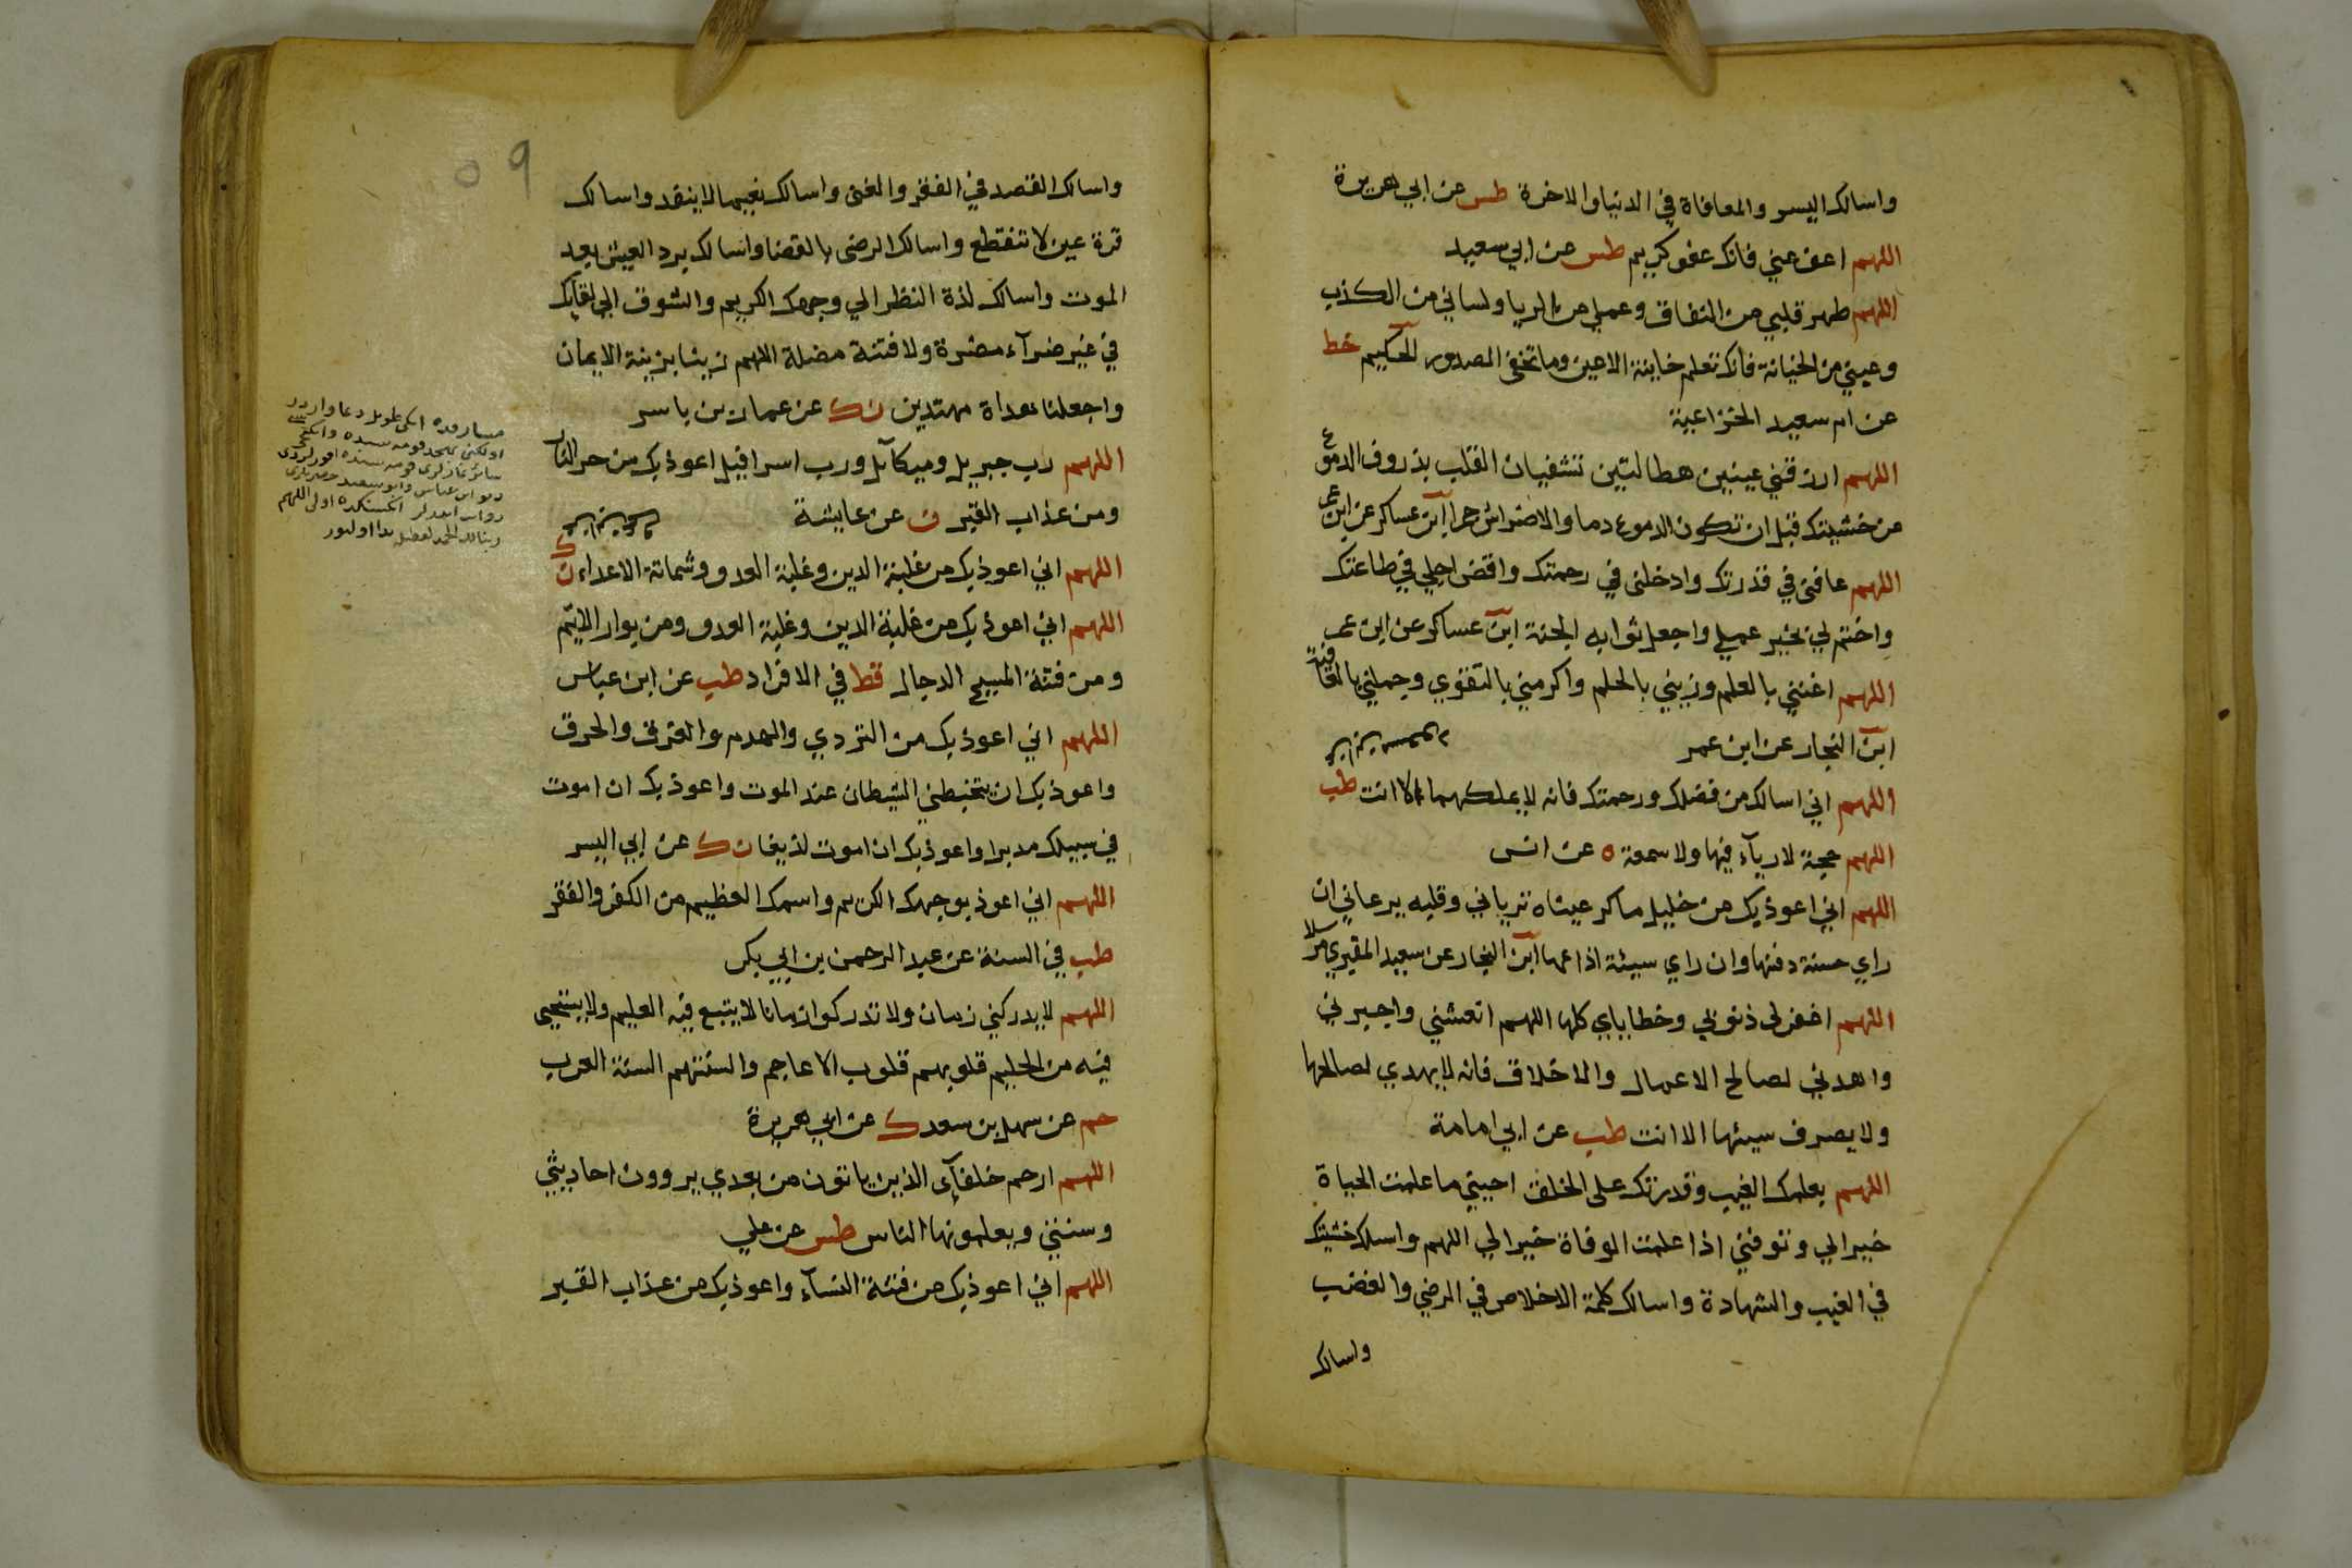 واسالك اليسر والمعافاة في الدنيا والاخرة طس عن ابي هريرة
اللهم اعف عني فانك عفو كريم طس عن ابي سعيد
اللهم طهر قلبي من النفاق وعملي من الريا ولساني من الكذب
وعيني من الخيانة فانك تعلم خاينة الاعين وما تخفى الصدور الحكيم خط
عن ام سعيد الخزاعية
اللهم ارزقني عينين هطالتين تشفيان القلب بذروف الدموع
من خشيتك قبل ان تكون الدموع دما والاضراس جمرا ابن عساكر عن ابن عمر
اللهم عافنى في قدرتك وادخلنى في رحمتك واقض اجلي في طاعتك
واختم لي بخير عملي واجعل ثوابه الجنة ابن عساكر عن ابن عمر
اللهم اغنني بالعلم وزيني بالحلم واكرمني بالتقوي وجملني بالعافية
ابن النجار عن ابن عمر
اللهم اني اسالك من فضلك ورحمتك فانه لا يملكهما الا انت طب
اللهم حجة لا ريآء فيها ولا سمعة ه عن انس
اللهم اني اعوذ بك من خليل ماكر عيناه ترياني وقلبه يرعاني ان
راي حسنة دفنها وان راي سيئة اذاعها ابن النجار عن سعيد المقبري مرسلا
اللهم اغفر لى ذنوبي وخطاياي كلها اللهم انعشني واجبرني
واهدني لصالح الاعمال والاخلاق فانه لا يهدي لصالحها
ولا يصرف سيئها الا انت طب عن ابي امامة
اللهم بعلمك الغيب وقدرتك على الخلق احيني ما علمت الحياة
خيرا لي وتوفني اذا علمت الوفاة خيرا لي اللهم واسالك خشيتك
في الغيب والشهادة واسالك كلمة الاخلاص في الرضي والغضب
واسالك
٥٩
واسالك القصد في الفقر والغنى واسالك نعيما لا ينفد واسالك
قرة عين لا تنقطع واسالك الرضى بالقضا واسالك برد العيش بعد
الموت واسالك لذة النظر الي وجهك الكريم والشوق الى لقآئك
في غير ضرآء مضرة ولا فتنة مضلة اللهم زينا بزينة الايمان
واجعلنا هداة مهتدين ن ك عن عمار بن ياسر
اللهم رب جبريل وميكآيل ورب اسرافيل اعوذ بك من حر النار
ومن عذاب القبر ن عن عايشة
اللهم اني اعوذ بك من غلبة الدين وغلبة العدو وشماتة الاعداء ن ك
اللهم اني اعوذ بك من غلبة الدين وغلبة العدو ومن بوار الايّم
ومن فتنة المسيح الدجال قط في الافراد طب عن ابن عباس
اللهم اني اعوذ بك من التردي والهدم والغرق والحرق
واعوذ بك ان يتخبطني الشيطان عند الموت واعوذ بك ان اموت
في سبيلك مدبرا واعوذ بك ان اموت لذيغا ن ك عن ابي اليسر
اللهم اني اعوذ بوجهك الكريم واسمك العظيم من الكفر والفقر
طب في السنة عن عبد الرحمن بن ابي بكر
اللهم لا يدركني زمان ولا تدركوا زمانا لا يتبع فيه العليم ولا يستحيى
فيه من الحليم قلوبهم قلوب الاعاجم والسنتهم السنة العرب
حم عن سهل بن سعد ك عن ابي هريرة
اللهم ارحم خلفآئى الذين ياتون من بعدي يروون احاديثي
وسنتي ويعلمونها الناس طس عن علي
اللهم اني اعوذ بك من فتنة النسآء واعوذ بك من عذاب القبر